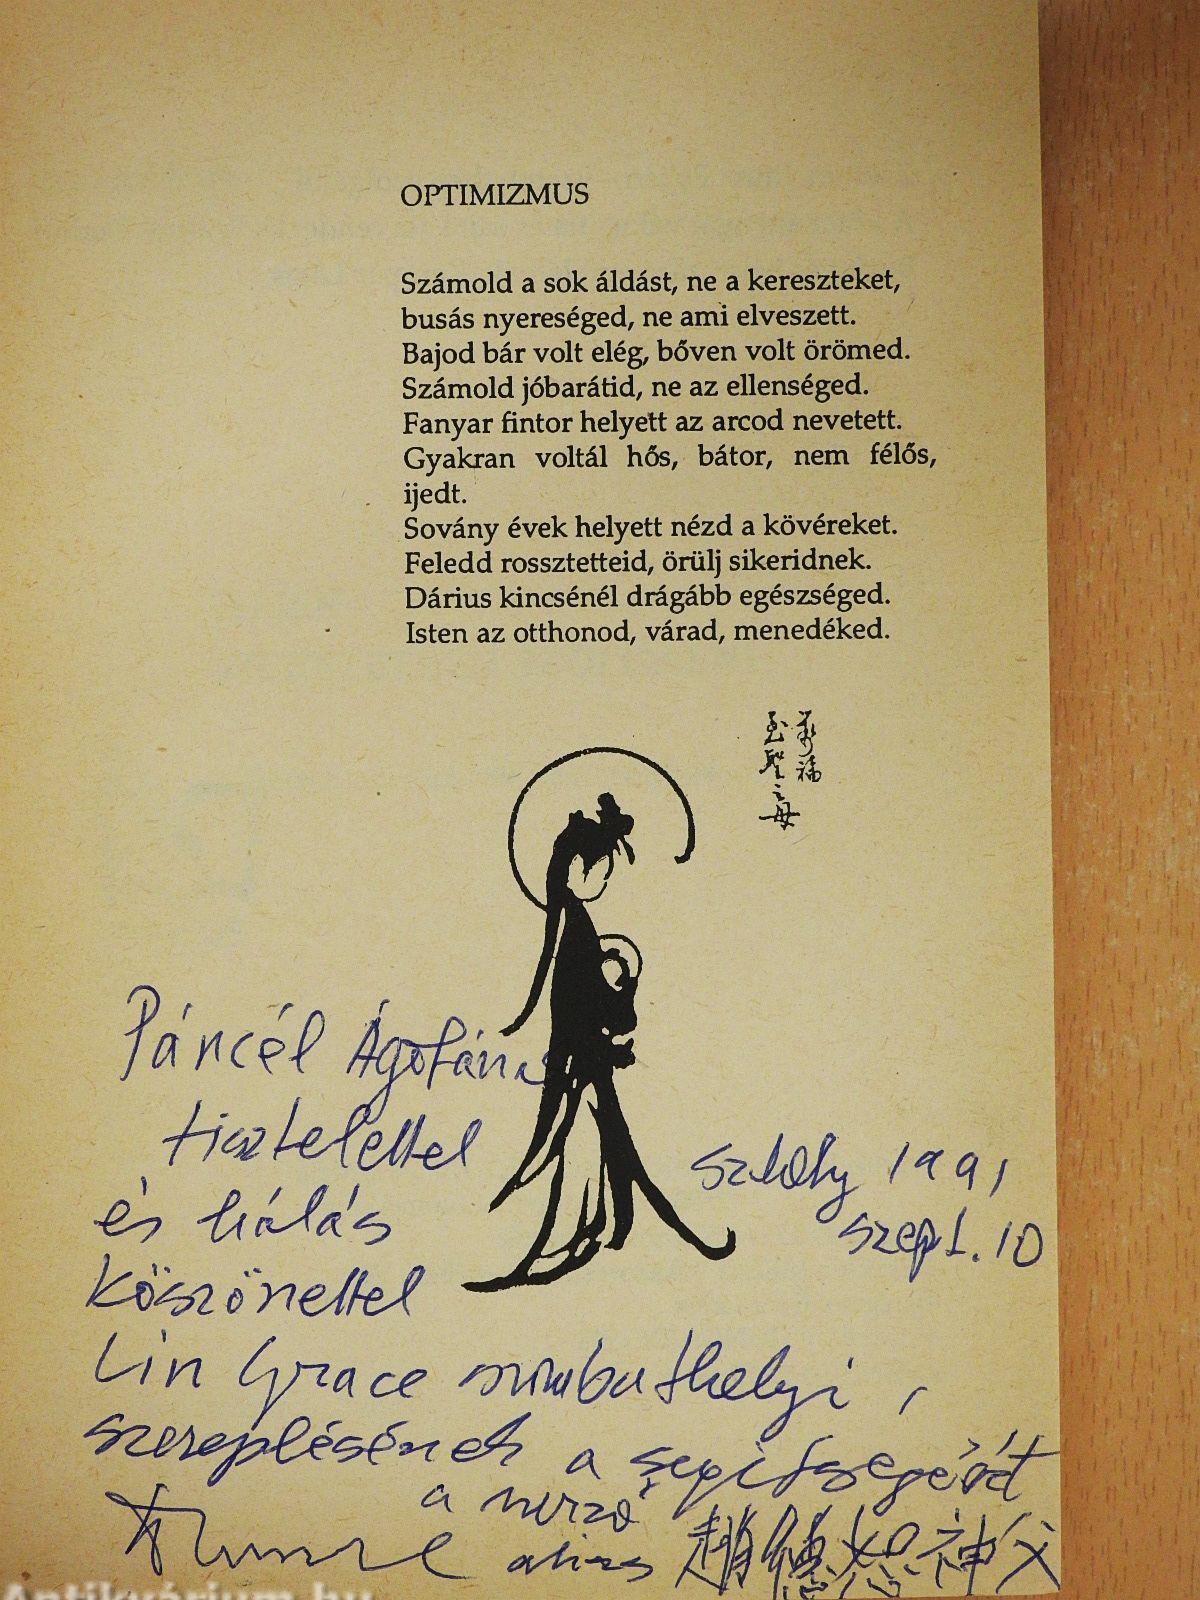 OPTIMIZMUS
Számold a sok áldást, ne a kereszteket,
busás nyereséged, ne ami elveszett.
Bajod bár volt elég, bőven volt örömed.
Számold jóbarátid, ne az ellenséged.
Fanyar fintor helyett az arcod nevetett.
Gyakran voltál hős, bátor, nem félős,
ijedt.
Sovány évek helyett nézd a kövéreket.
Feledd rossztetteid, örülj sikeridnek.
Dárius kincsénél drágább egészséged.
Isten az otthonod, várad, menedéked.
萬福
至聖之母
Páncél Ágotának
tisztelettel
és hálás
köszönettel
Lin Grace szombathelyi
szereplésének a segítségéért
a szerző
alias 趙德恕神父
Szthely 1991
szept. 10
Antikvárium.hu